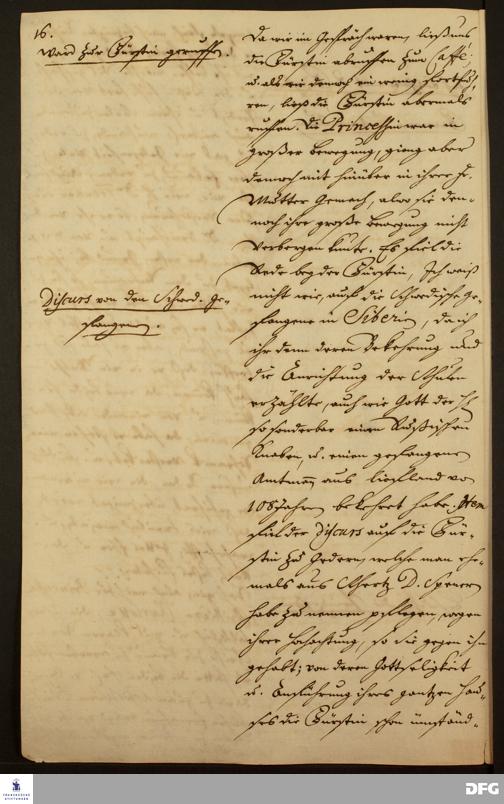 16.
Ward zur Fürstin geruffen.
Da wir im Gespräch waren, ließ uns
die Fürstin abruffen zum Caffé,
u. als wir dennoch ein wenig fortfuh-
ren, ließ die Fürstin abermals
ruffen. Die Princeßin war in
großer bewegung, gieng aber
dennoch mit hinüber in ihrer Fr.
Mutter Gemach, alwo sie den-
noch ihre große bewegung nicht
verbergen kunte. Es fiel die
Rede bey der Fürstin, Ich weiß
Discurs von den Schwed. Ge-
fangenen.
nicht wie, auf die Schwedische Ge-
fangene in Siberien, da ich
ihr denn deren Bekehrung und
die Anrichtung der Schulen
erzählte, auch wie Gott der H.
so sonderbar einen Rußischen
Knaben, u. einen gefangenen
Amtmann aus Liefland von
108 Jahren bekehret habe. Item
fiel der Discurs auf die Für-
stin zu Gedern, welche man ehe-
mals aus Schertz D. Speners
habe zu nennen pflegen, wegen
ihrer Hochachtung, so sie gegen ihn
gehabt; von deren Gottseligkeit
u. Anführung ihres gantzen Hau-
ses die Fürstin schon umständ-
FRANCKESCHE
STIFTUNGEN
DFG